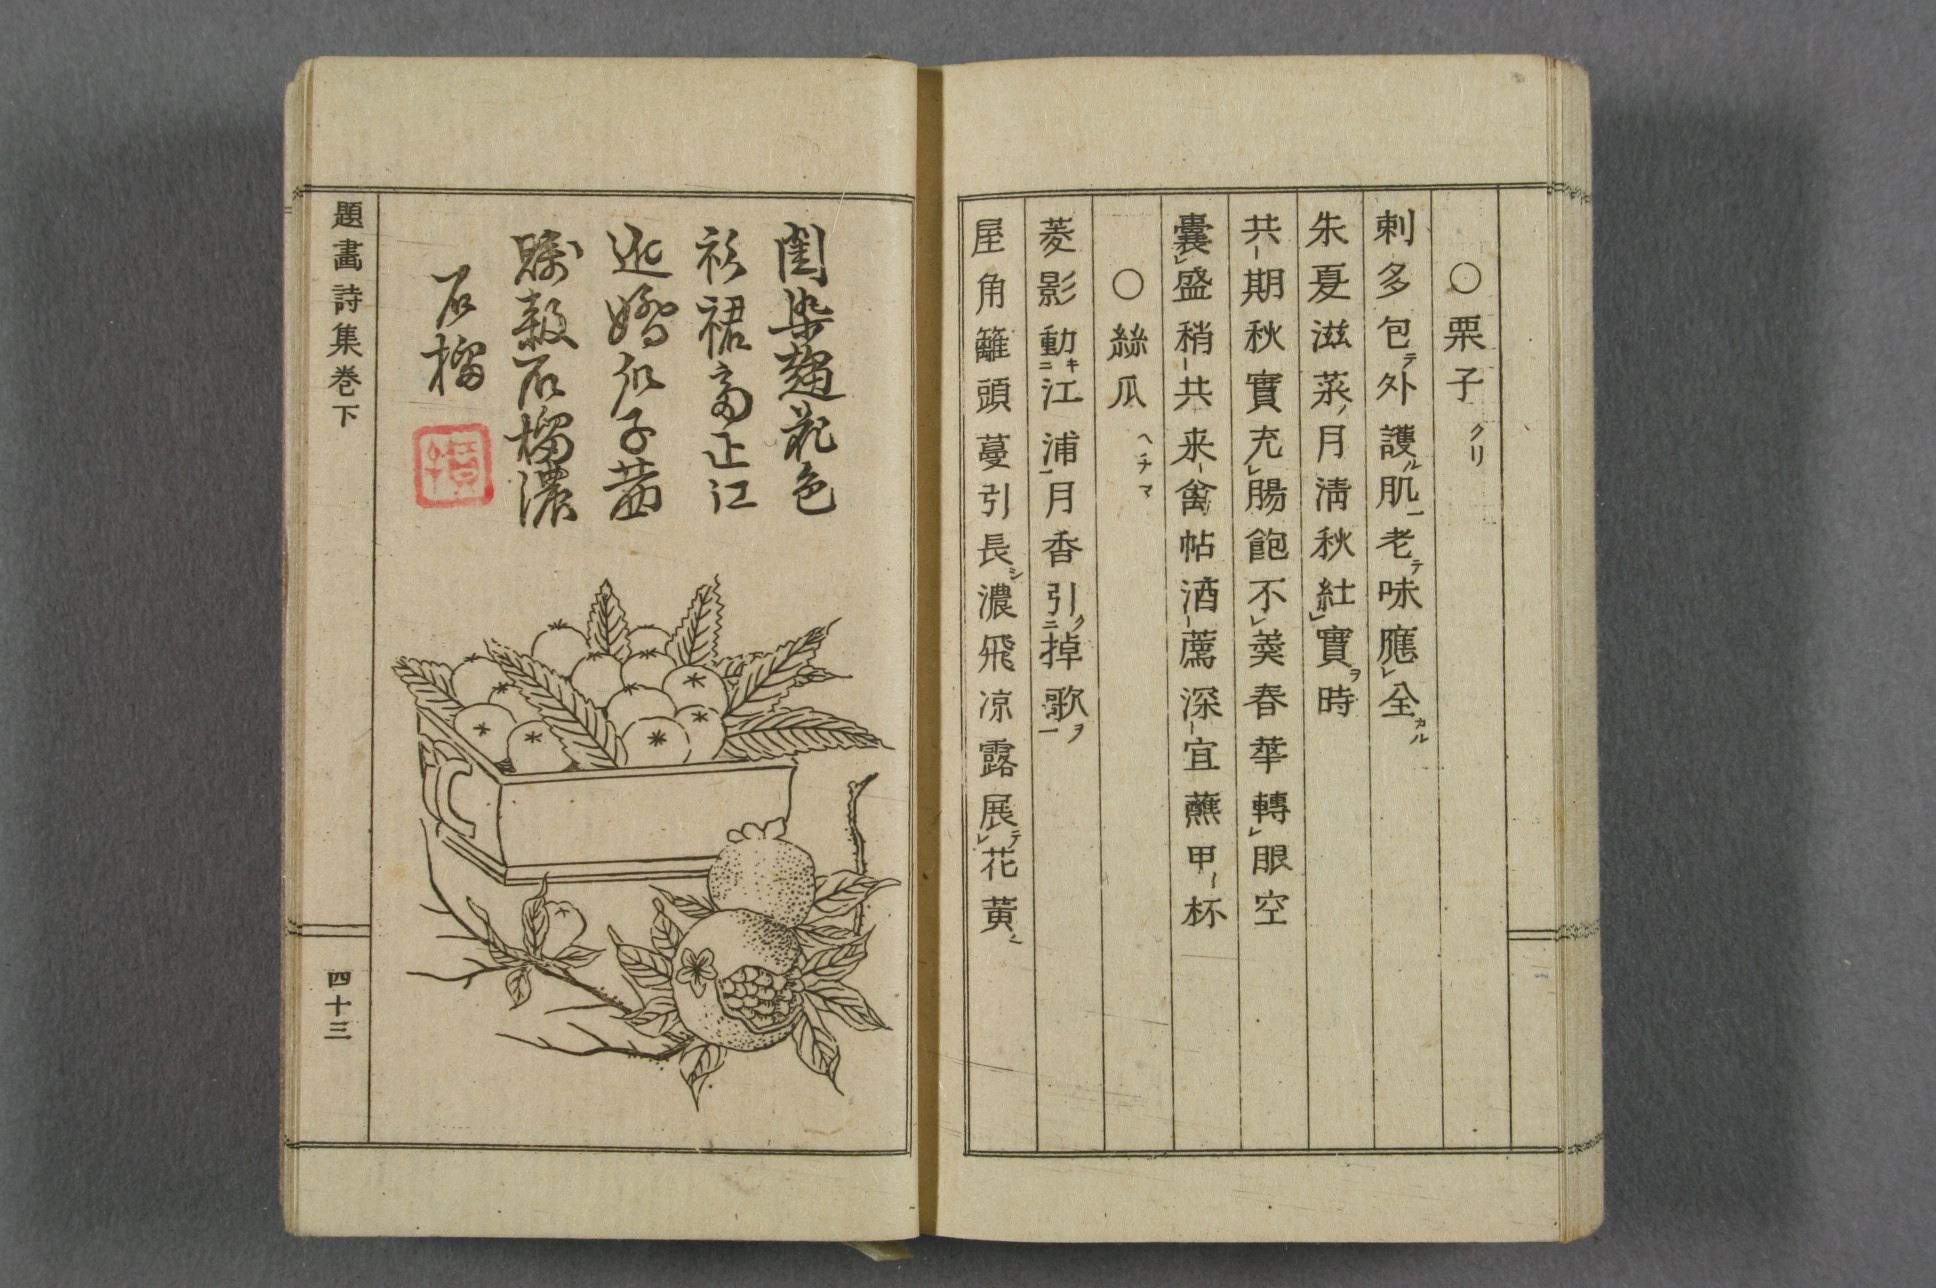 〇栗子 クリ
刺多包テ外護ルレ肌一老テ味應レ全カル
朱夏滋菜ノ月淸秋紅レ實ヲ時
共一期秋實充レ腸飽不レ羨春華轉レ眼空
囊レ盛稍一共来一禽帖酒一薦深一宜蘸甲一杯
〇絲瓜 ヘチマ
菱影動キニ江浦一月香引クニ掉歌ヲ一
屋角籬頭蔓引長シ濃飛凉露展テレ花黃ニ
閨染花色
衫裙高正江
瓜子茜
石榴濃
石榴
題畫詩集巻下
四十三